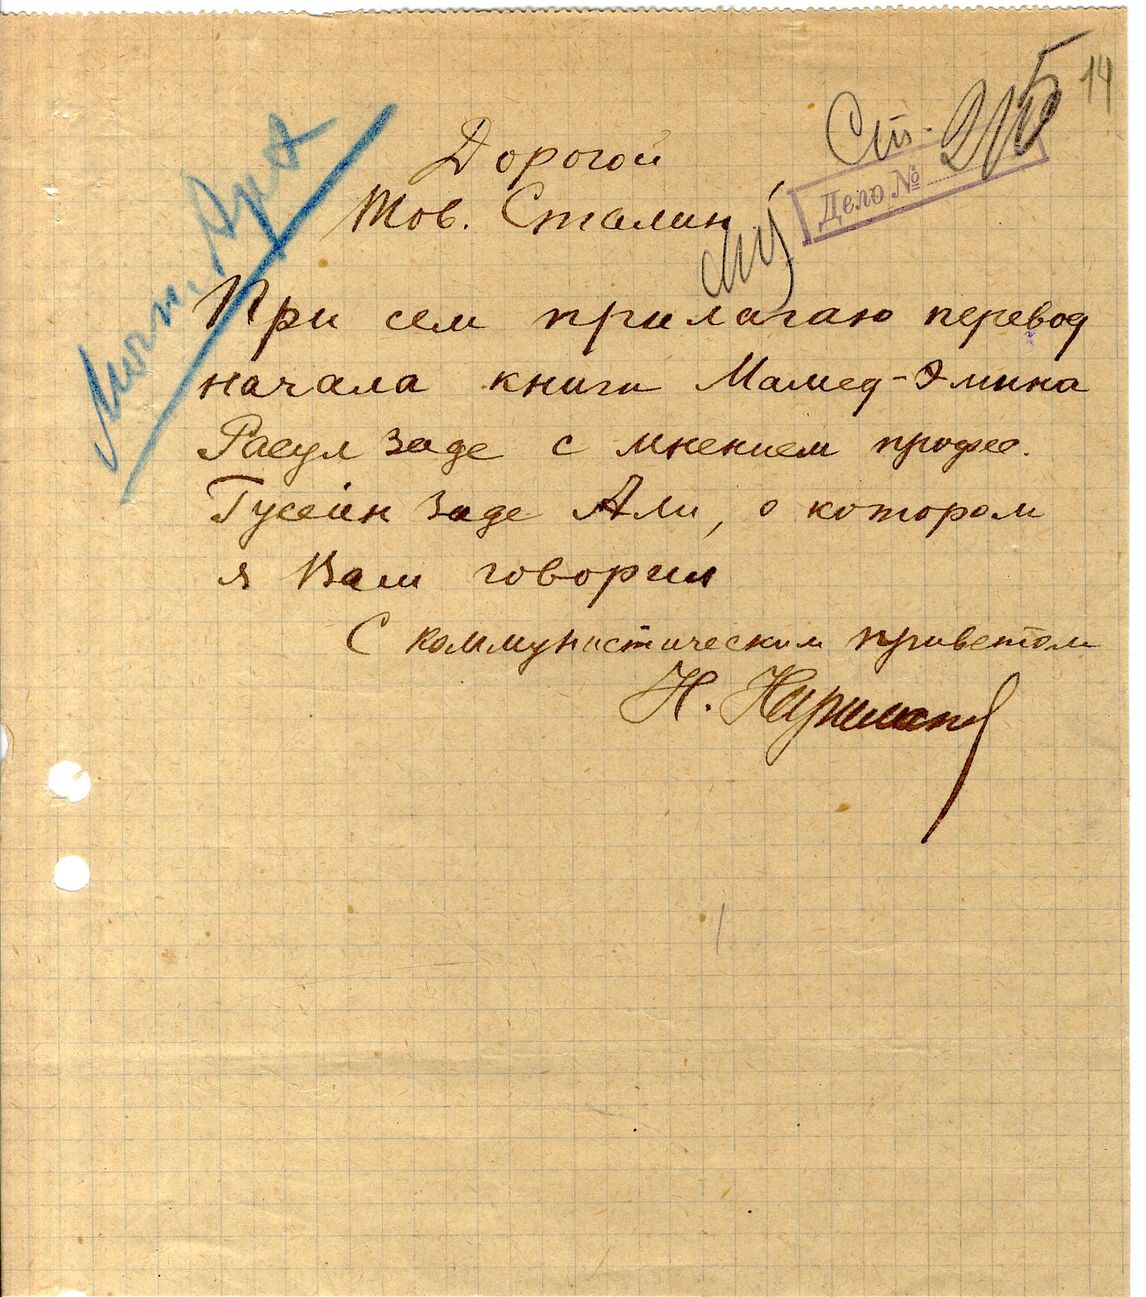 14
Ст. 215
Дело №
Дорогой
Тов. Сталин!
При сем прилагаю перевод
начала книги Мамед-Эмина
Расул заде с мнением профес.
Гусейн заде Али, о котором
я Вам говорил
С коммунистическим приветом
Н. Нариманов